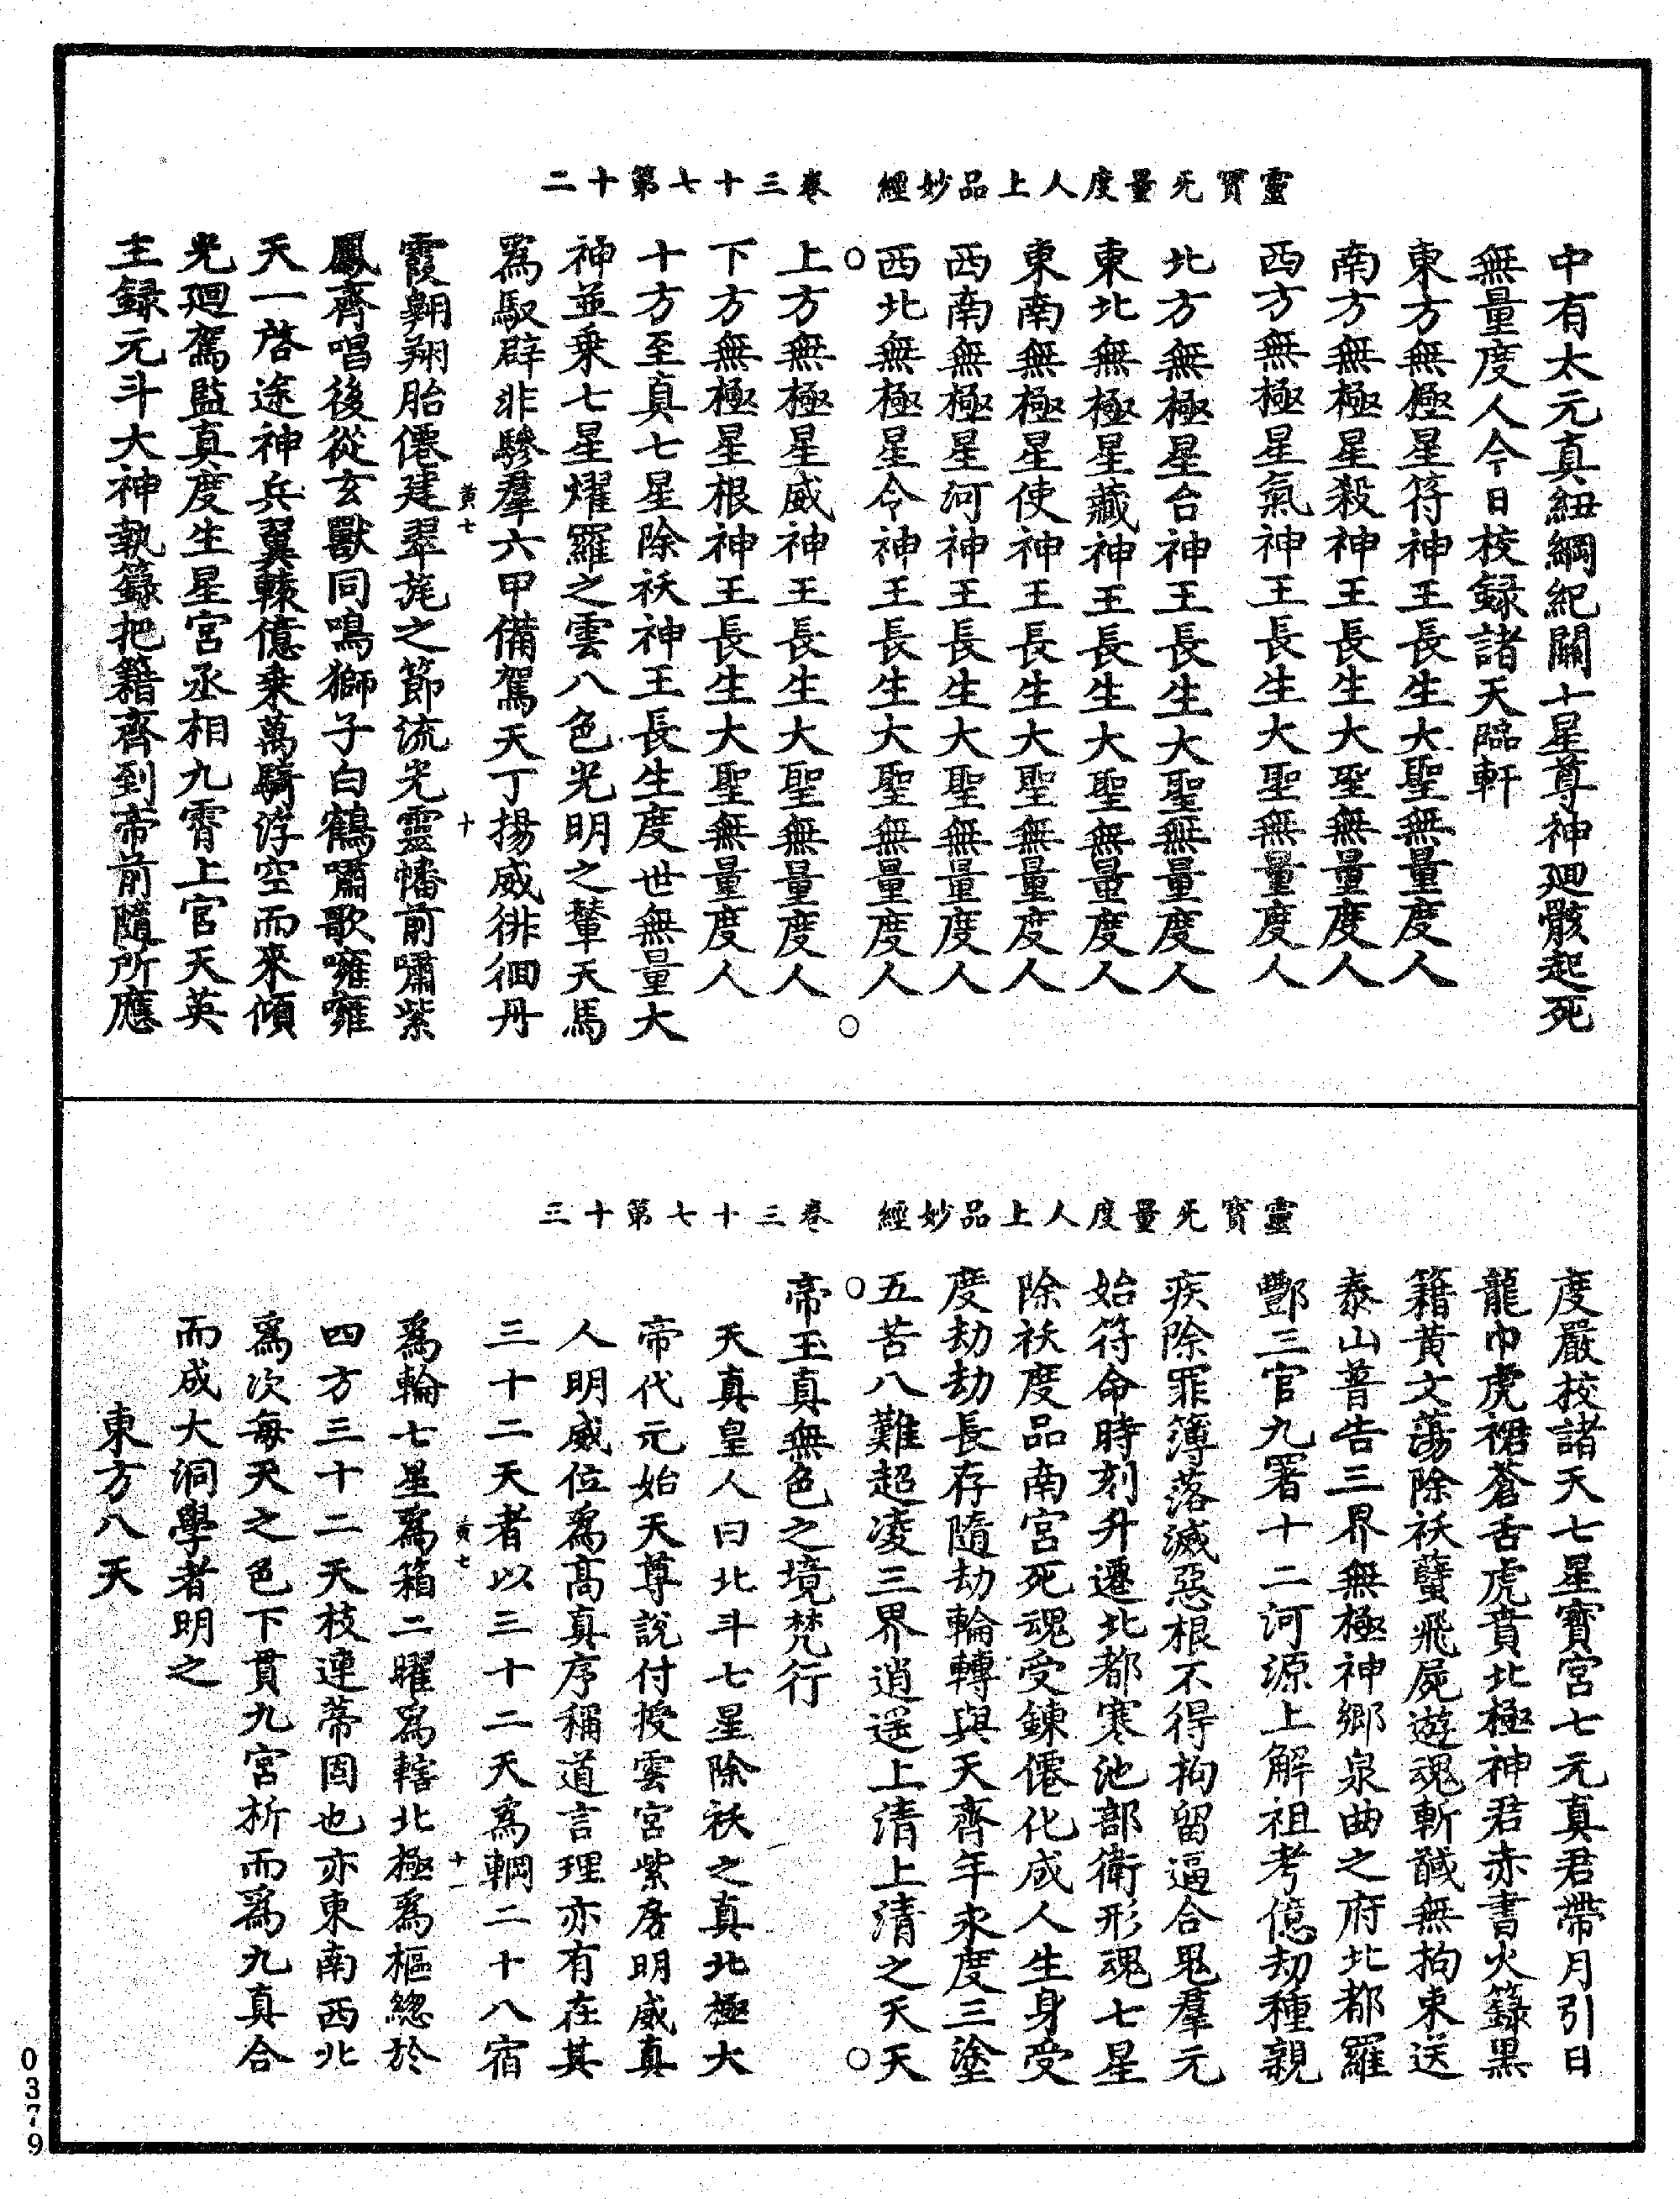 靈寶无量度人上品妙經 卷三十七第十二
中有太元真紐綱紀關十星尊神廻骸起死
無量度人今日校録諸天臨軒
東方無極星符神王長生大聖無量度人
南方無極星殺神王長生大聖無量度人
西方無極星氣神王長生大聖無量度人
北方無極星台神王長生大聖無量度人
東北無極星藏神王長生大聖無量度人
東南無極星使神王長生大聖無量度人
西南無極星河神王長生大聖無量度人
西北無極星令神王長生大聖無量度人
○ ○
上方無極星威神王長生大聖無量度人
下方無極星根神王長生大聖無量度人
十方至真七星除祅神王長生度世無量大
神並乗七星燿羅之雲八色光明之輦天馬
爲馭辟非驂羣六甲備駕天丁揚威徘徊丹
黃七 十
霞翺翔胎僊建翠旄之節流光靈幡前嘯紫
鳳齊唱後從玄獸同鳴獅子白鶴嘯歌嗈嗈
天一啓途神兵翼轅億乗萬騎浮空而來傾
光廻駕監真度生星宮丞相九霄上宮天英
主録元斗大神執籙把籍齊到帝前隨所應
靈寶无量度人上品妙經 卷三十七第十三
度嚴校諸天七星寶宮七元真君帶月引日
龍巾虎裙蒼舌虎賁北極神君赤書火籙黑
籍黃文蕩除祅孽飛屍遊魂斬馘無拘束送
泰山普告三界無極神鄉泉曲之府北都羅
酆三官九署十二河源上解祖考億劫種親
疾除罪簿落滅惡根不得拘留逼合鬼羣元
始符命時刻升遷北都寒池部衛形魂七星
除祅度品南宮死魂受鍊僊化成人生身受
度劫劫長存隨劫輪轉與天齊年永度三塗
五苦八難超凌三界逍遥上清上清之天天
○ ○
帝玉真無色之境梵行
天真皇人曰北斗七星除祅之真北極大
帝代元始天尊說付授雲宮紫房明威真
人明威位爲高真序稱道言理亦有在其
三十二天者以三十二天爲輞二十八宿
黃七 十一
爲輪七星爲箱二曜爲轄北極爲樞緫於
四方三十二天枝連蒂固也亦東南西北
爲次每天之色下貫九宮析而爲九真合
而成大洞學者明之
東方八天
0379